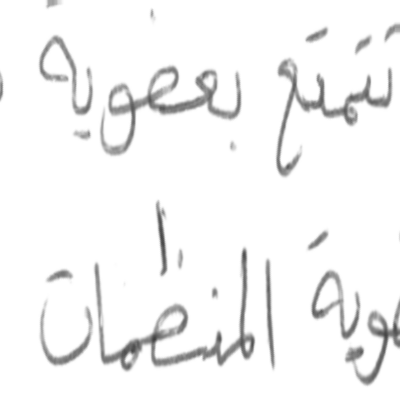 تتمتع بعضوية
ـوية المنظمات